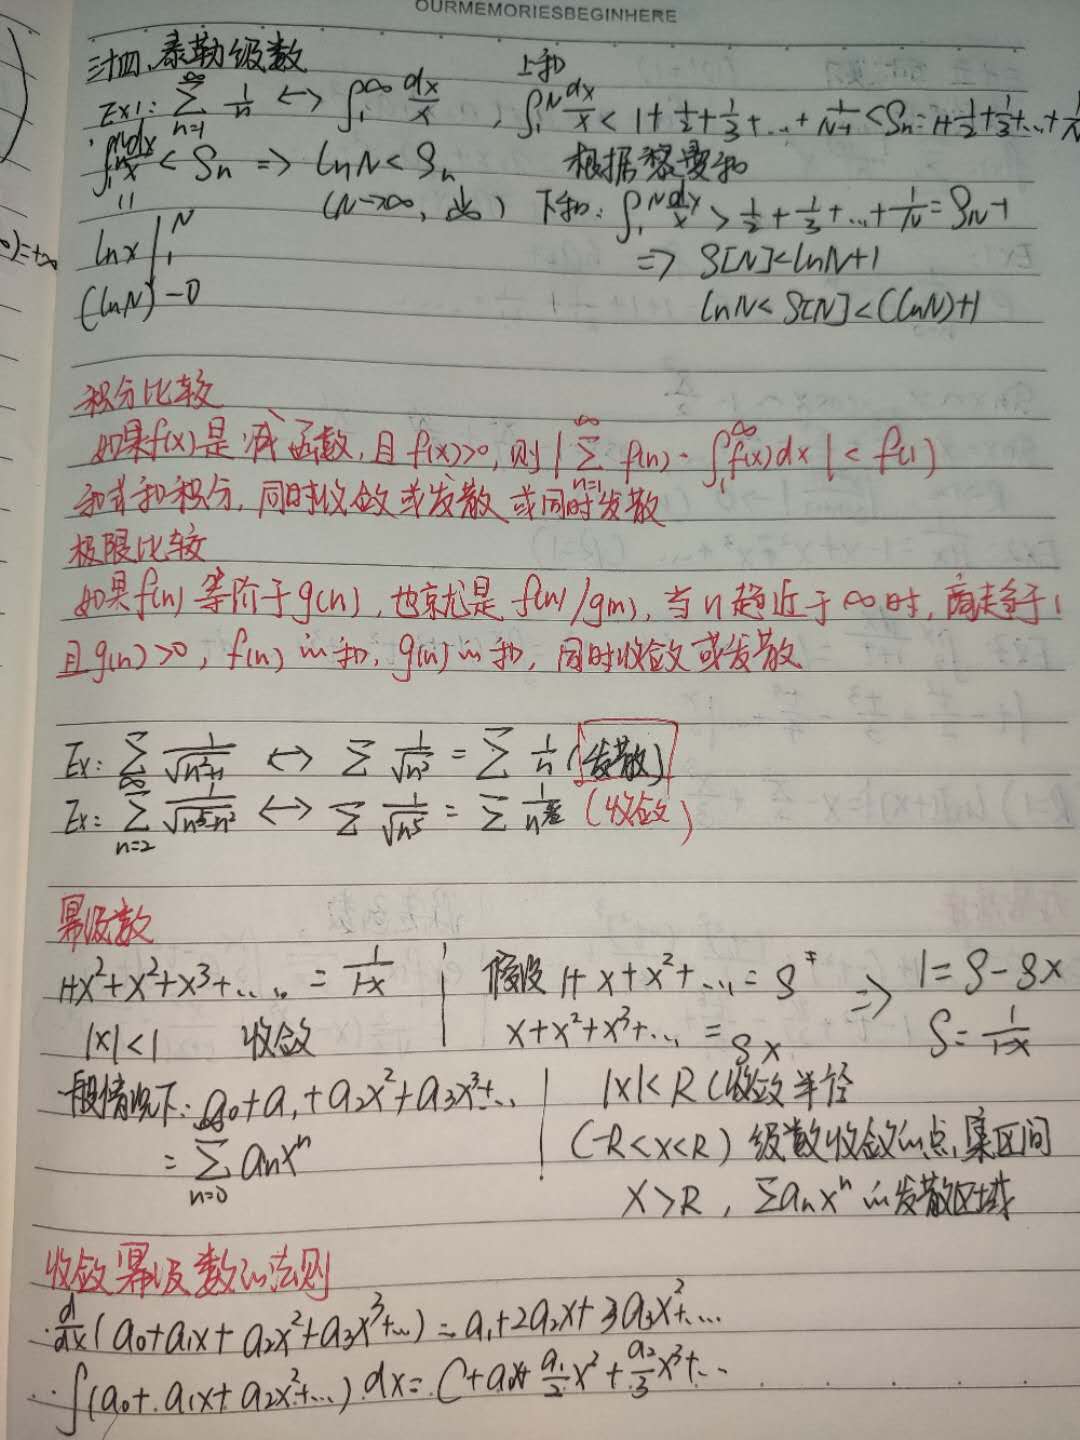 OURMEMORIESBEGINHERE
三十四、泰勒级数
上和
Ex1: ∑_{n=1}^{∞} 1/n ↔ ∫_1^∞ dx/x , ∫_1^N dx/x < 1+1/2+1/3+...+1/(N-1) < S_n = 1+1/2+1/3+...+1/N
∫_1^N dx/x < S_n => ln N < S_n 根据黎曼和
(N→∞, ↓∞) 下和: ∫_1^N dx/x > 1/2+1/3+...+1/N = S_N-1
ln x |_1^N => S[N]<lnN+1
(lnN)-0 lnN< S[N]<(lnN)+1
积分比较
如果f(x)是减函数,且 f(x)>0,则 |∑_{n=1}^{∞} f(n) - ∫_1^∞ f(x)dx| < f(1)
和式和积分,同时收敛或发散或同时发散
极限比较
如果f(n) 等阶于g(n),也就是 f(n)/g(n),当n趋近于∞时,商趋于1
且g(n)>0, f(n)的和,g(n)的和,同时收敛或发散
Ex: ∑ 1/√(n²+1) ↔ ∑ 1/√n² = ∑ 1/n (发散)
Ex: ∑_{n=2}^{∞} 1/√(n⁵-n²) ↔ ∑ 1/√n⁵ = ∑ 1/n^{5/2} (收敛)
幂级数
1+x²+x²+x³+...... = 1/(1-x)
|x|<1 收敛
假设 1+x+x²+.... = S
x+x²+x³+... = Sx
=> 1=S-Sx
S=1/(1-x)
一般情况下: a₀+a₁+a₂x²+a₃x³+...
= ∑_{n=0}^{∞} aₙxⁿ
|x|<R (收敛半径
(-R<x<R) 级数收敛的点,案区间
x>R, ∑aₙxⁿ的发散区域
收敛幂级数的法则
d/dx (a₀+a₁x+a₂x²+a₃x³+...) = a₁+2a₂x+3a₃x²+....
∫(a₀+a₁x+a₂x²+...) dx = C+a₀x+a₁/2 x²+a₂/3 x³+...